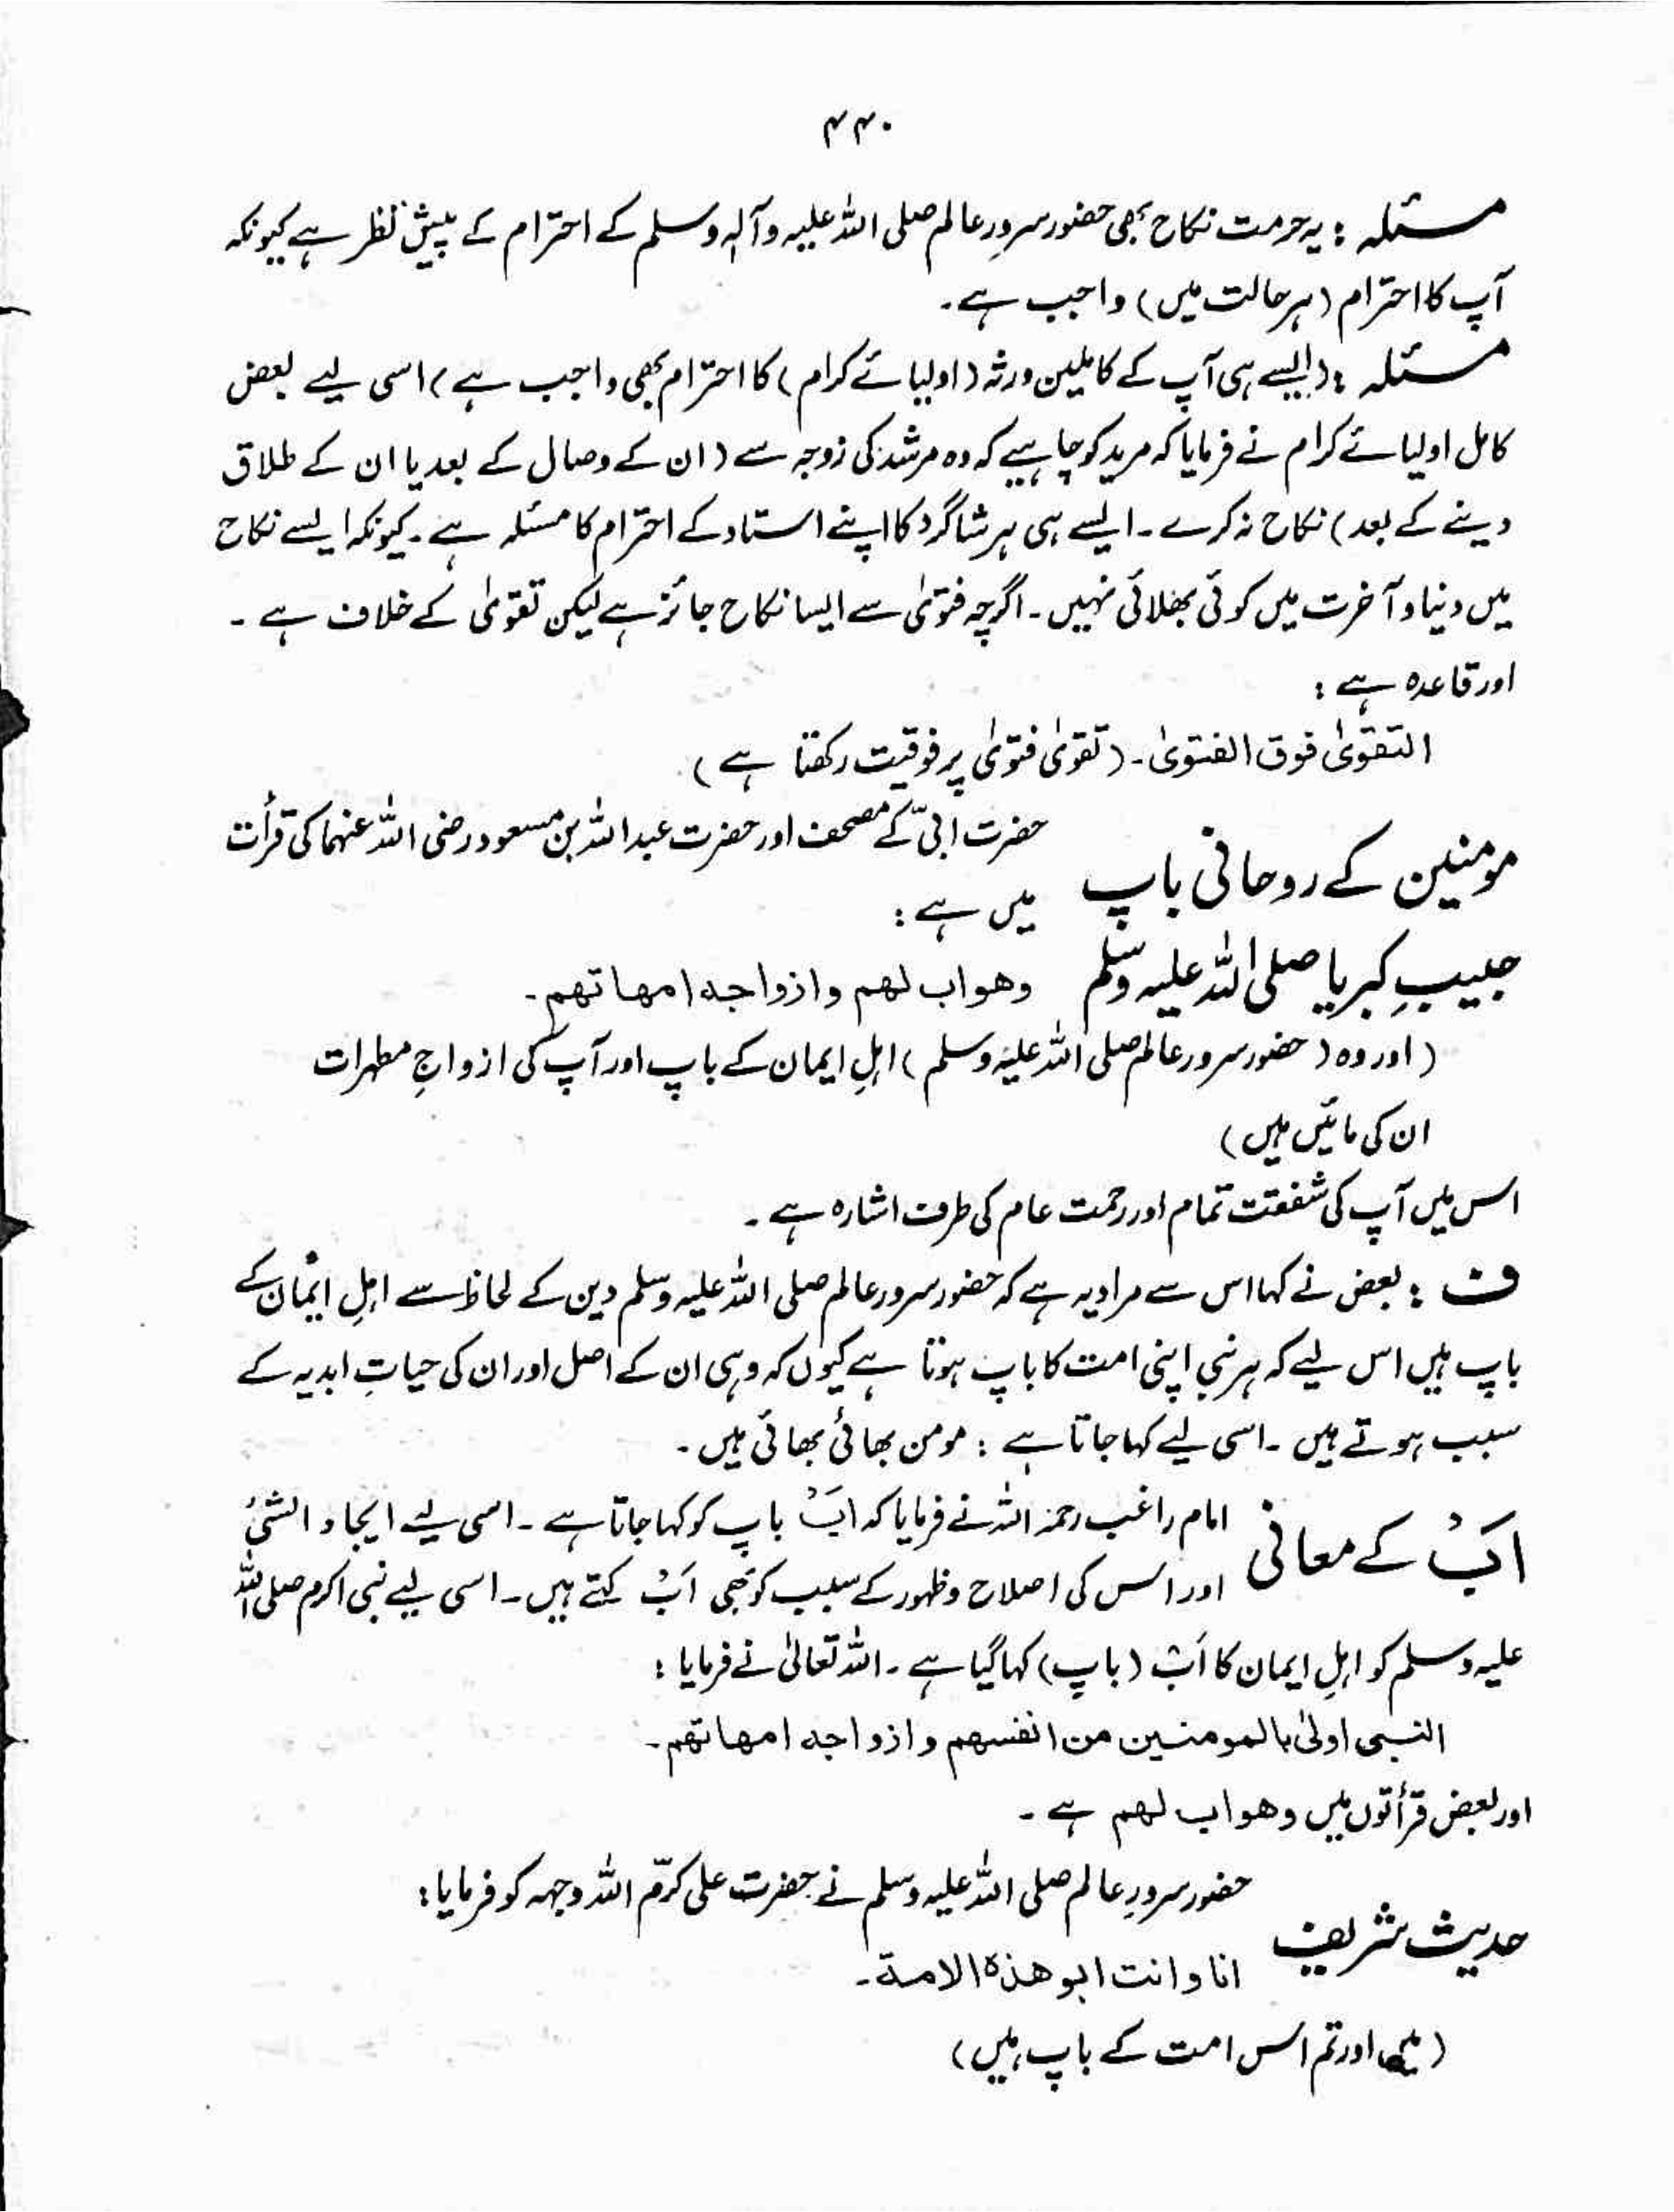 ۴۴۰
مسئلہ : یہ حرمت نکاح بھی حضور سرورِ عالم صلی اللہ علیہ وآلہٖ وسلم کے احترام کے پیشِ نظر ہے کیونکہ
آپ کا احترام (ہر حالت میں) واجب ہے۔
مسئلہ : (ایسے ہی آپ کے کاملین ورثہ (اولیائے کرام) کا احترام بھی واجب ہے) اسی لیے بعض
کامل اولیائے کرام نے فرمایا کہ مرید کو چاہیے کہ وہ مرشد کی زوجہ سے (ان کے وصال کے بعد یا ان کے طلاق
دینے کے بعد) نکاح نہ کرے۔ ایسے ہی ہر شاگرد کا اپنے استاد کے احترام کا مسئلہ ہے۔ کیونکہ ایسے نکاح
میں دنیا و آخرت میں کوئی بھلائی نہیں۔ اگرچہ فتوٰی سے ایسا نکاح جائز ہے لیکن تقوٰی کے خلاف ہے۔
اور قاعدہ ہے :
التقوٰی فوق الفتوٰی۔ (تقوٰی فتوٰی پر فوقیت رکھتا ہے)
مومنین کے روحانی باپ حضرت ابیّ کے مصحف اور حضرت عبداللہ بن مسعود رضی اللہ عنہما کی قرأت
میں ہے :
حبیبِ کبریا صلی اللہ علیہ وسلّم وھواب لھم وازواجہ امھاتھم۔
(اور وہ (حضور سرور عالم صلی اللہ علیہ وسلم) اہلِ ایمان کے باپ اور آپ کی ازواجِ مطہرات
ان کی مائیں ہیں)
اس میں آپ کی شفقت تمام اور رحمت عام کی طرف اشارہ ہے۔
ف : بعض نے کہا اس سے مراد یہ ہے کہ حضور سرور عالم صلی اللہ علیہ وسلم دین کے لحاظ سے اہلِ ایمان کے
باپ ہیں اس لیے کہ ہر نبی اپنی امت کا باپ ہوتا ہے کیوں کہ وہی ان کے اصل اور ان کی حیاتِ ابدیہ کے
سبب ہوتے ہیں۔ اسی لیے کہا جاتا ہے : مومن بھائی بھائی ہیں۔
اَبْ کے معانی امام راغب رحمہ اللہ نے فرمایا کہ اَبْ باپ کو کہا جاتا ہے۔ اسی لیے ایجاد الشئ
اور اس کی اصلاح و ظہور کے سبب کو بھی اَبْ کہتے ہیں۔ اسی لیے نبی اکرم صلی اللہ
علیہ وسلم کو اہلِ ایمان کا اَبْ (باپ) کہا گیا ہے۔ اللہ تعالیٰ نے فرمایا :
النبی اولیٰ بالمومنین من انفسھم وازواجہ امھاتھم۔
اور بعض قرأتوں میں وھواب لھم ہے۔
حدیث شریف حضور سرورِ عالم صلی اللہ علیہ وسلم نے حضرت علی کرّم اللہ وجہہ کو فرمایا :
انا وانت ابو ھذہ الامۃ۔
(میں اور تم اس امت کے باپ ہیں)